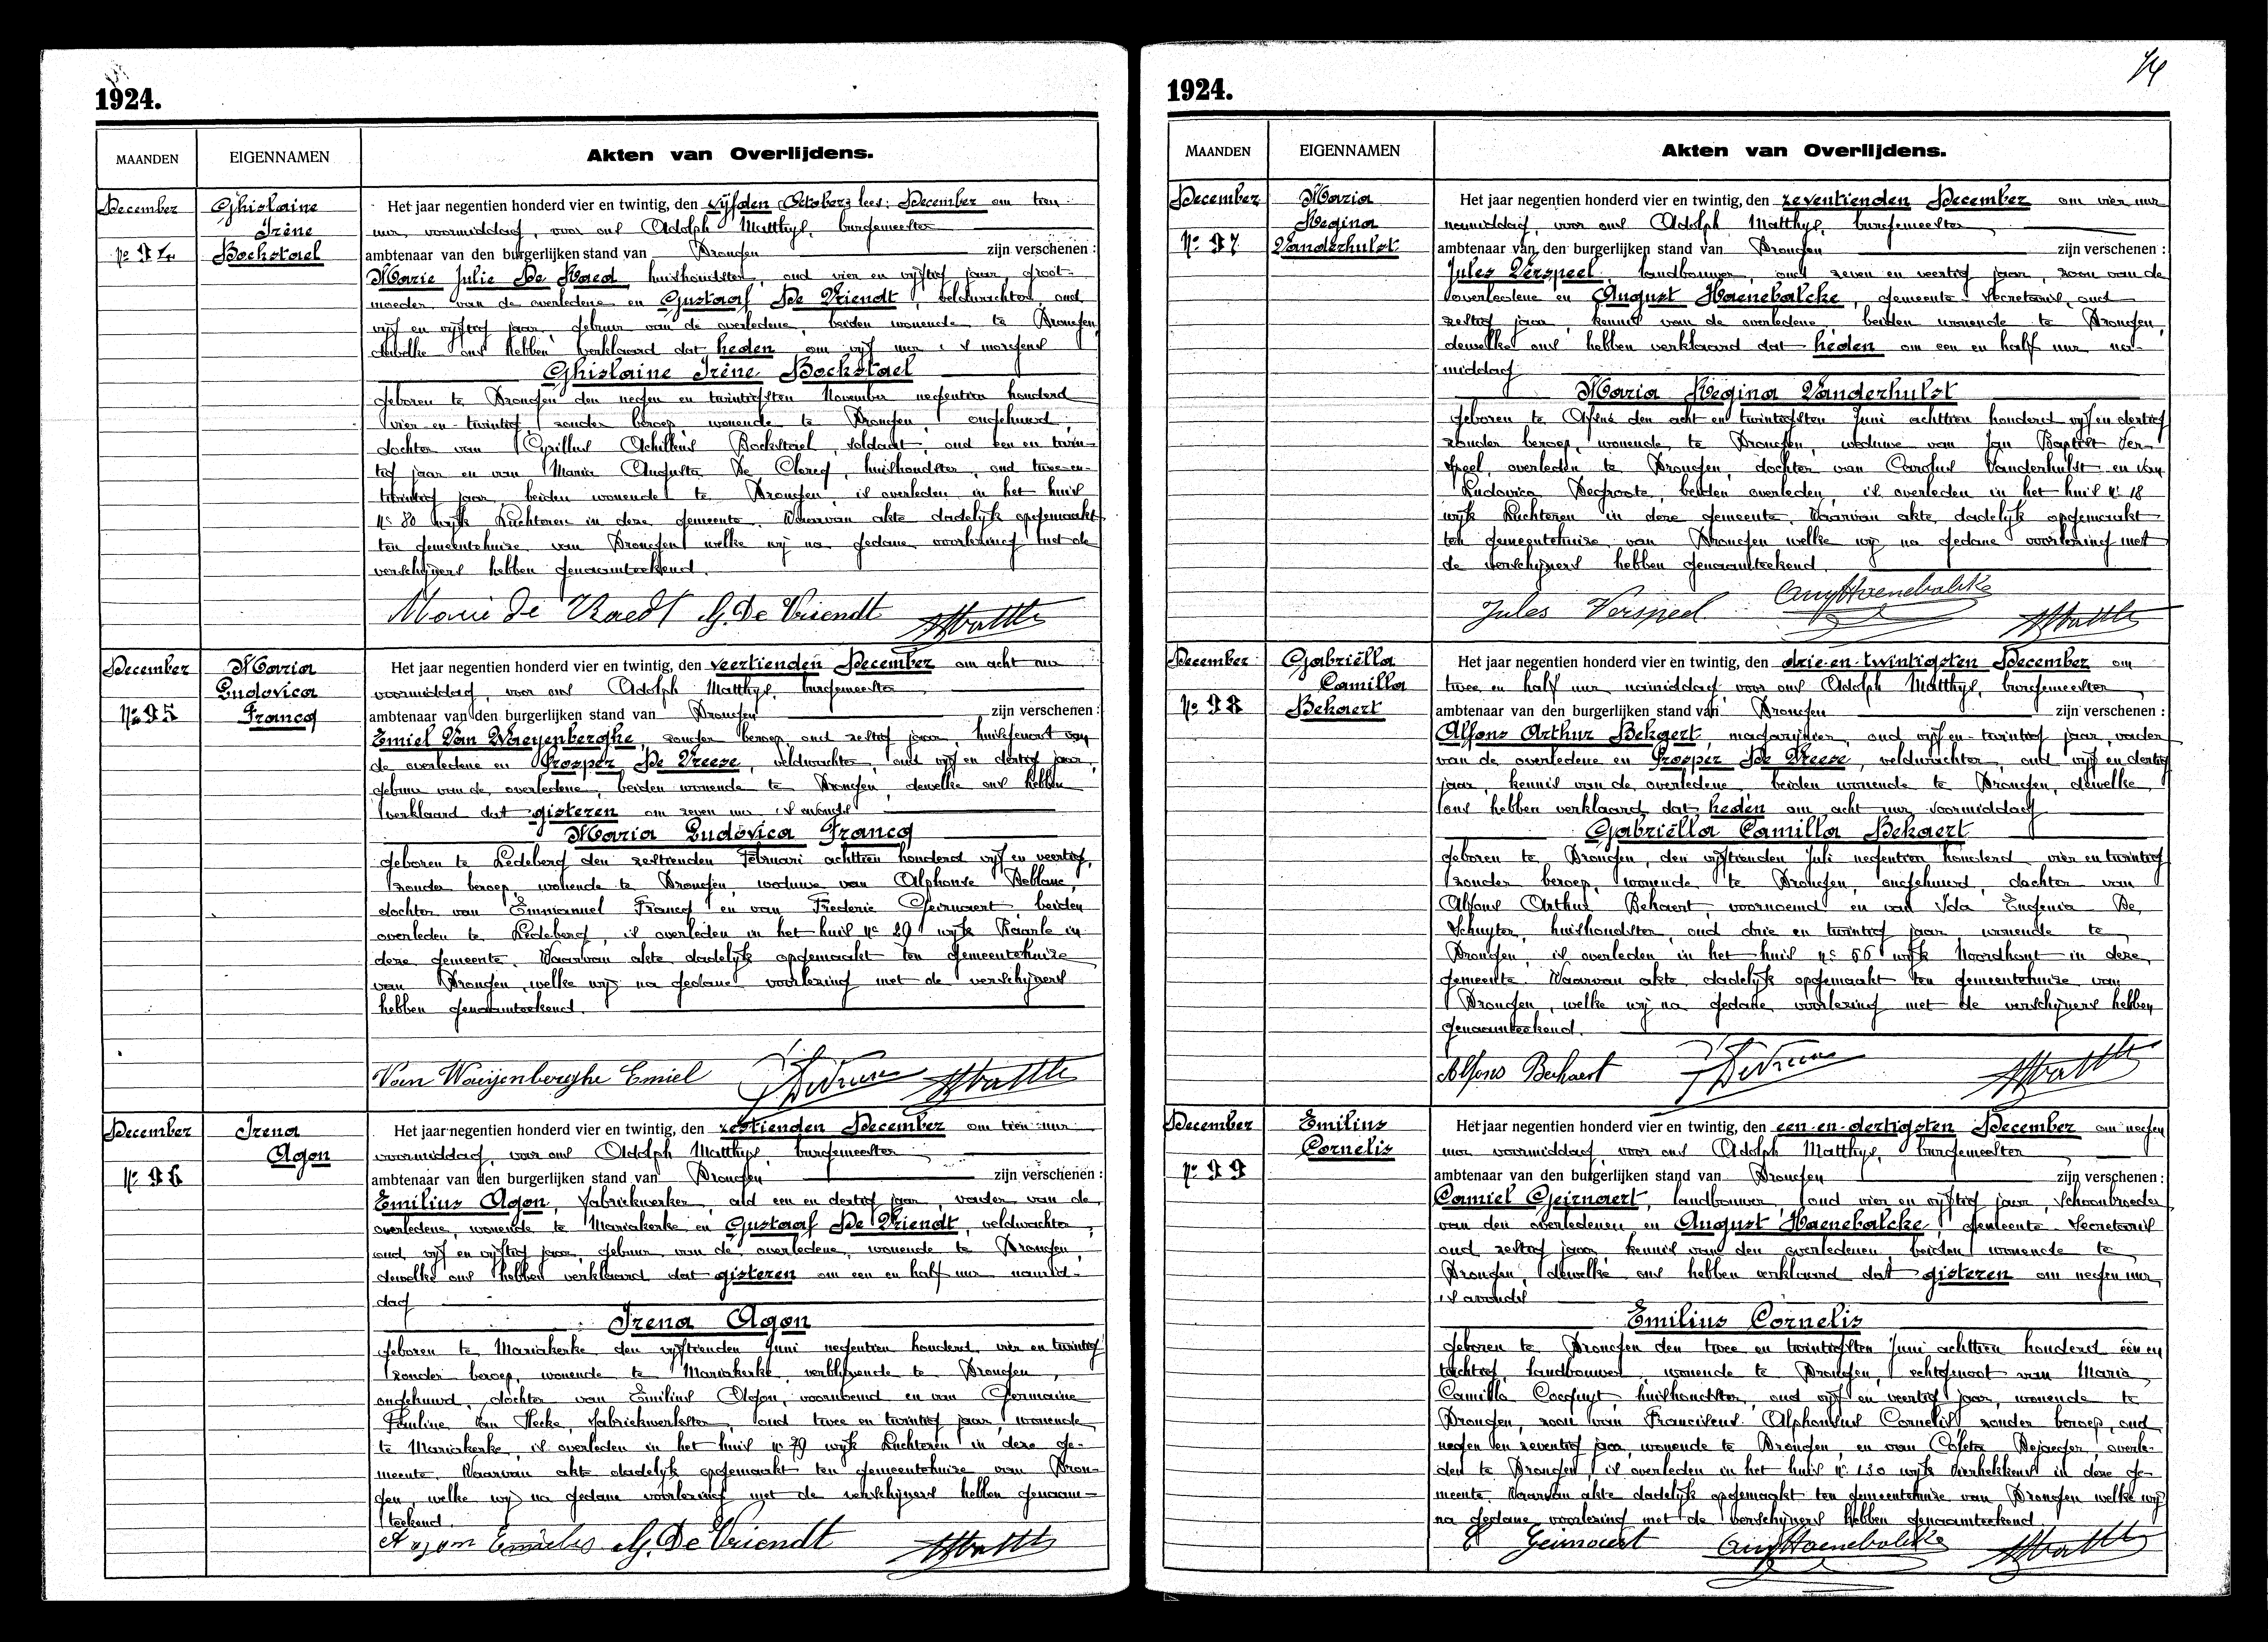 1924.
MAANDEN
EIGENNAMEN
Akten van Overlijdens.
December
Ghislaine
Irène
Nº 94
Bockstael
Het jaar negentien honderd vier en twintig, den vijfden October; lees: December om tien
uur, voormiddag, voor ons Adolph Matthys, burgemeester
ambtenaar van den burgerlijken stand van Drongen zijn verschenen :
Marie Julie De Raed, huishoudster, oud vier en vijftig jaar, groot-
moeder van de overledene en Gustaaf De Vriendt, veldwachter, oud
vijf en vijftig jaar, gebuur van de overledene, beiden wonende te Drongen,
dewelke ons hebben verklaard dat heden om vijf uur 's morgens
Ghislaine Irène Bockstael
geboren te Drongen den negen en twintigsten November negentien honderd
vier-en-twintig, zonder beroep, wonende te Drongen, ongehuwd,
dochter van Cyrillus Achilleus Bockstael, soldaat, oud een en twin-
tig jaar en van Maria Augusta De Clercq, huishoudster, oud twee-en-
twintig jaar, beiden wonende te Drongen, is overleden in het huis
Nº 80 wijk Luchteren in deze gemeente. Waarvan akte dadelijk opgemaakt
ten gemeentehuize van Drongen welke wij na gedane voorlezing met de
verschijners hebben genaamteekend.
Marie De Raedt G. De Vriendt AMatthys
December
Maria
Ludovica
Nº 95
Francq
Het jaar negentien honderd vier en twintig, den veertienden December om acht uur
voormiddag, voor ons Adolph Matthys, burgemeester
ambtenaar van den burgerlijken stand van Drongen zijn verschenen :
Emiel Van Waeyenberghe, zonder beroep, oud zestig jaar, huisgenoot van
de overledene en Prosper De Vreese, veldwachter, oud vijf en dertig jaar,
gebuur van de overledene, beiden wonende te Drongen, dewelke ons hebben
verklaard dat gisteren om zeven uur 's avonds
Maria Ludovica Francq
geboren te Ledeberg den zestienden Februari achttien honderd vijf en veertig,
zonder beroep, wonende te Drongen, weduwe van Alphonse Deblanc,
dochter van Emmanuel Francq en van Frederic Geirnaert, beiden
overleden te Ledeberg, is overleden in het huis Nº 29 wijk Baarle in
deze gemeente. Waarvan akte dadelijk opgemaakt ten gemeentehuize
van Drongen, welke wij na gedane voorlezing met de verschijners
hebben genaamteekend.
Van Waeijenberghe Emiel P. De Vreese AMatthys
December
Irena
Agon
Nº 96
Het jaar negentien honderd vier en twintig, den zestienden December om tien uur
voormiddag, voor ons Adolph Matthys, burgemeester
ambtenaar van den burgerlijken stand van Drongen zijn verschenen :
Emilius Agon, fabriekwerker, oud een en dertig jaar, vader van de
overledene, wonende te Mariakerke en Gustaaf De Vriendt, veldwachter,
oud vijf en vijftig jaar, gebuur van de overledene, wonende te Drongen,
dewelke ons hebben verklaard dat gisteren om een en half uur namid-
dag
Irena Agon
geboren te Mariakerke den vijftienden Juni negentien honderd vier en twintig
zonder beroep, wonende te Mariakerke verblijvende te Drongen,
ongehuwd, dochter van Emilius Agon, voornoemd en van Germaine
Pauline Van Hecke, fabriekwerkster, oud twee en twintig jaar, wonende
te Mariakerke, is overleden in het huis Nº 79 wijk Luchteren in deze ge-
meente. Waarvan akte dadelijk opgemaakt ten gemeentehuize van Dron-
gen, welke wij na gedane voorlezing met de verschijners hebben genaam-
teekend.
Agon Emiel G. De Vriendt AMatthys
14
1924.
MAANDEN
EIGENNAMEN
Akten van Overlijdens.
December
Maria
Regina
Nº 97
Vanderhulst
Het jaar negentien honderd vier en twintig, den zeventienden December om vier uur
namiddag, voor ons Adolph Matthys, burgemeester
ambtenaar van den burgerlijken stand van Drongen zijn verschenen :
Jules Verspeel, landbouwer, oud zeven en veertig jaar, zoon van de
overledene en August Haenebalcke, gemeente-secretaris, oud
zestig jaar, kennis van de overledene beiden wonende te Drongen,
dewelke ons hebben verklaard dat heden om een en half uur na-
middag
Maria Regina Vanderhulst
geboren te Afsné den acht en twintigsten Juni achttien honderd vijf en dertig
zonder beroep, wonende te Drongen, weduwe van Jan Baptist Ver-
speel, overleden te Drongen, dochter van Carolus Vanderhulst en van
Ludovica Degroote, beiden overleden, is overleden in het huis Nº 18
wijk Luchteren in deze gemeente. Waarvan akte dadelijk opgemaakt
ten gemeentehuize van Drongen welke wij na gedane voorlezing met
de verschijners hebben genaamteekend.
Jules Verspeel Aug Haenebalcke AMatthys
December
Gabriëlla
Camilla
Nº 98
Bekaert
Het jaar negentien honderd vier en twintig, den drie-en-twintigsten December om
twee en half uur namiddag, voor ons Adolph Matthys, burgemeester
ambtenaar van den burgerlijken stand van Drongen zijn verschenen :
Alfons Arthur Bekaert, magazijnier, oud vijf en twintig jaar, vader
van de overledene en Prosper De Vreese, veldwachter, oud vijf en dertig
jaar, kennis van de overledene, beiden wonende te Drongen, dewelke
ons hebben verklaard dat heden om acht uur voormiddag
Gabriëlla Camilla Bekaert
geboren te Drongen, den vijftienden Juli negentien honderd vier en twintig
zonder beroep, wonende te Drongen, ongehuwd, dochter van
Alfons Arthur Bekaert, voornoemd en van Ida Eugenia De
Schuyter, huishoudster, oud drie en twintig jaar, wonende te
Drongen, is overleden in het huis Nº 56 wijk Noordhout in deze
gemeente. Waarvan akte dadelijk opgemaakt ten gemeentehuize van
Drongen, welke wij na gedane voorlezing met de verschijners hebben
genaamteekend.
Alfons Bekaert P. De Vreese AMatthys
December
Emilius
Cornelis
Nº 99
Het jaar negentien honderd vier en twintig, den een-en-dertigsten December om negen
uur voormiddag, voor ons Adolph Matthys, burgemeester
ambtenaar van den burgerlijken stand van Drongen zijn verschenen :
Camiel Geirnaert, landbouwer, oud vier en vijftig jaar, schoonbroeder
van den overledenen en August Haenebalcke, gemeente-secretaris
oud zestig jaar, kennis van den overledenen, beiden wonende te
Drongen, dewelke ons hebben verklaard dat gisteren om negen uur,
's avonds
Emilius Cornelis
geboren te Drongen den twee en twintigsten Juni achttien honderd één en
tachtig, landbouwer, wonende te Drongen, echtgenoot van Maria
Camilla Cocquyt, huishoudster, oud vijf en veertig jaar, wonende te
Drongen, zoon van Franciscus Alphonsus Cornelis, zonder beroep, oud
negen en zeventig jaar, wonende te Drongen, en van Coleta Dejaeger, overle-
den te Drongen, is overleden in het huis Nº 130 wijk Vierhekkens in deze ge-
meente. Waarvan akte dadelijk opgemaakt ten gemeentehuize van Drongen welke wij
na gedane voorlezing met de verschijners hebben genaamteekend.
C Geirnaert Aug Haenebalcke AMatthys